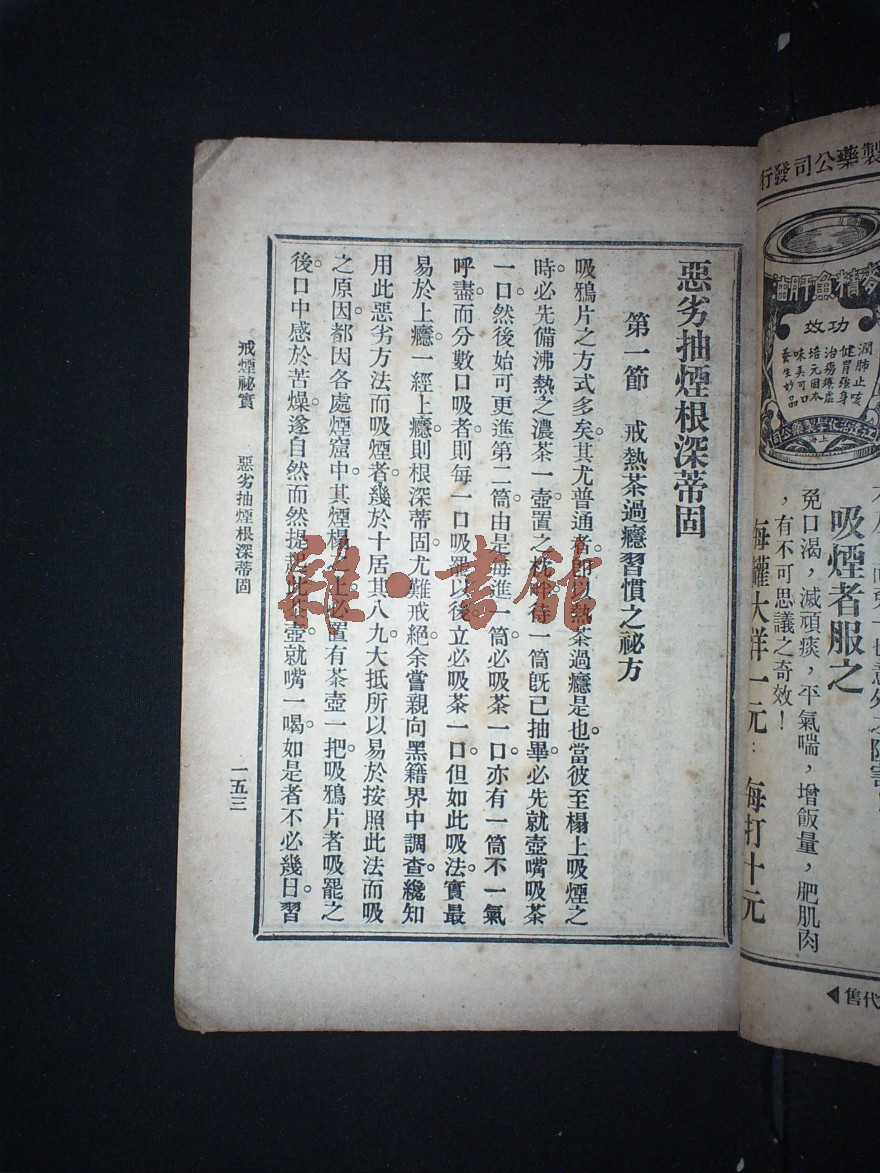 製藥公司發行
麥精魚肝油
功效
潤肺止咳
健胃强身
治癆療虛
培元固本
味美可口
養生妙品
吸煙者服之
免口渴，滅頑痰，平氣喘，增飯量，肥肌肉
，有不可思議之奇效！
每罐大洋一元：每打十元
代售
惡劣抽煙根深蒂固
第一節　戒熱茶過癮習慣之祕方
吸鴉片之方式多矣。其尤普通者。即以熱茶過癮是也。當彼至榻上吸煙之
時。必先備沸熱之濃茶一壺。置之枕畔。待一筒旣已抽畢。必先就壺嘴吸茶
一口。然後始可更進第二筒。由是每進一筒。必吸茶一口。亦有一筒不一氣
呼盡。而分數口吸者。則每一口吸罷以後。立必吸茶一口。但如此吸法。實最
易於上癮。一經上癮。則根深蒂固。尤難戒絕。余嘗親向黑籍界中調查。纔知
用此惡劣方法而吸煙者。幾於十居其八九。大抵所以易於按照此法而吸
之原因。都因各處煙窟中。其煙榻之上。必置有茶壺一把。吸鴉片者吸罷之
後。口中感於苦燥。遂自然而然提起此茶壺。就嘴一喝。如是者不必幾日。習
戒煙祕實　惡劣抽煙根深蒂固　一五三
雜·書館